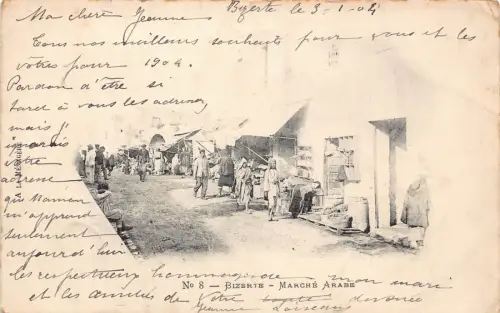 Bizerte le 3-1-04
Ma chère Jeanne
Tous nos meilleurs souhaits pour vous et les
vôtres pour 1904.
Pardon d'être si
tard à vous les adresser
mais j'
votre
adresse
que Maman
m'apprend
seulement
aujourd'hui
les respectueux hommages de mon mari
et les amitiés de votre toute dévouée
Jeanne
A LA MÉNAGÈRE
No 8 — BIZERTE - MARCHÉ ARABE